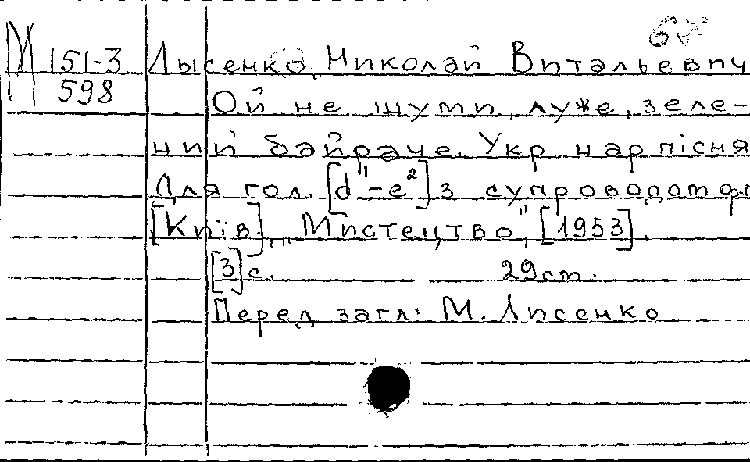 М 151-3 Лысенко, Николай Витальевич
598 Ой не шуми, луже, зеле-
ний байраче. Укр нар пісня
Для гол. [d"-e²] з супроводом ф
[Київ], "Мистецтво", [1953].
[3] с. 29 cm.
Перед загл: М. Лисенко